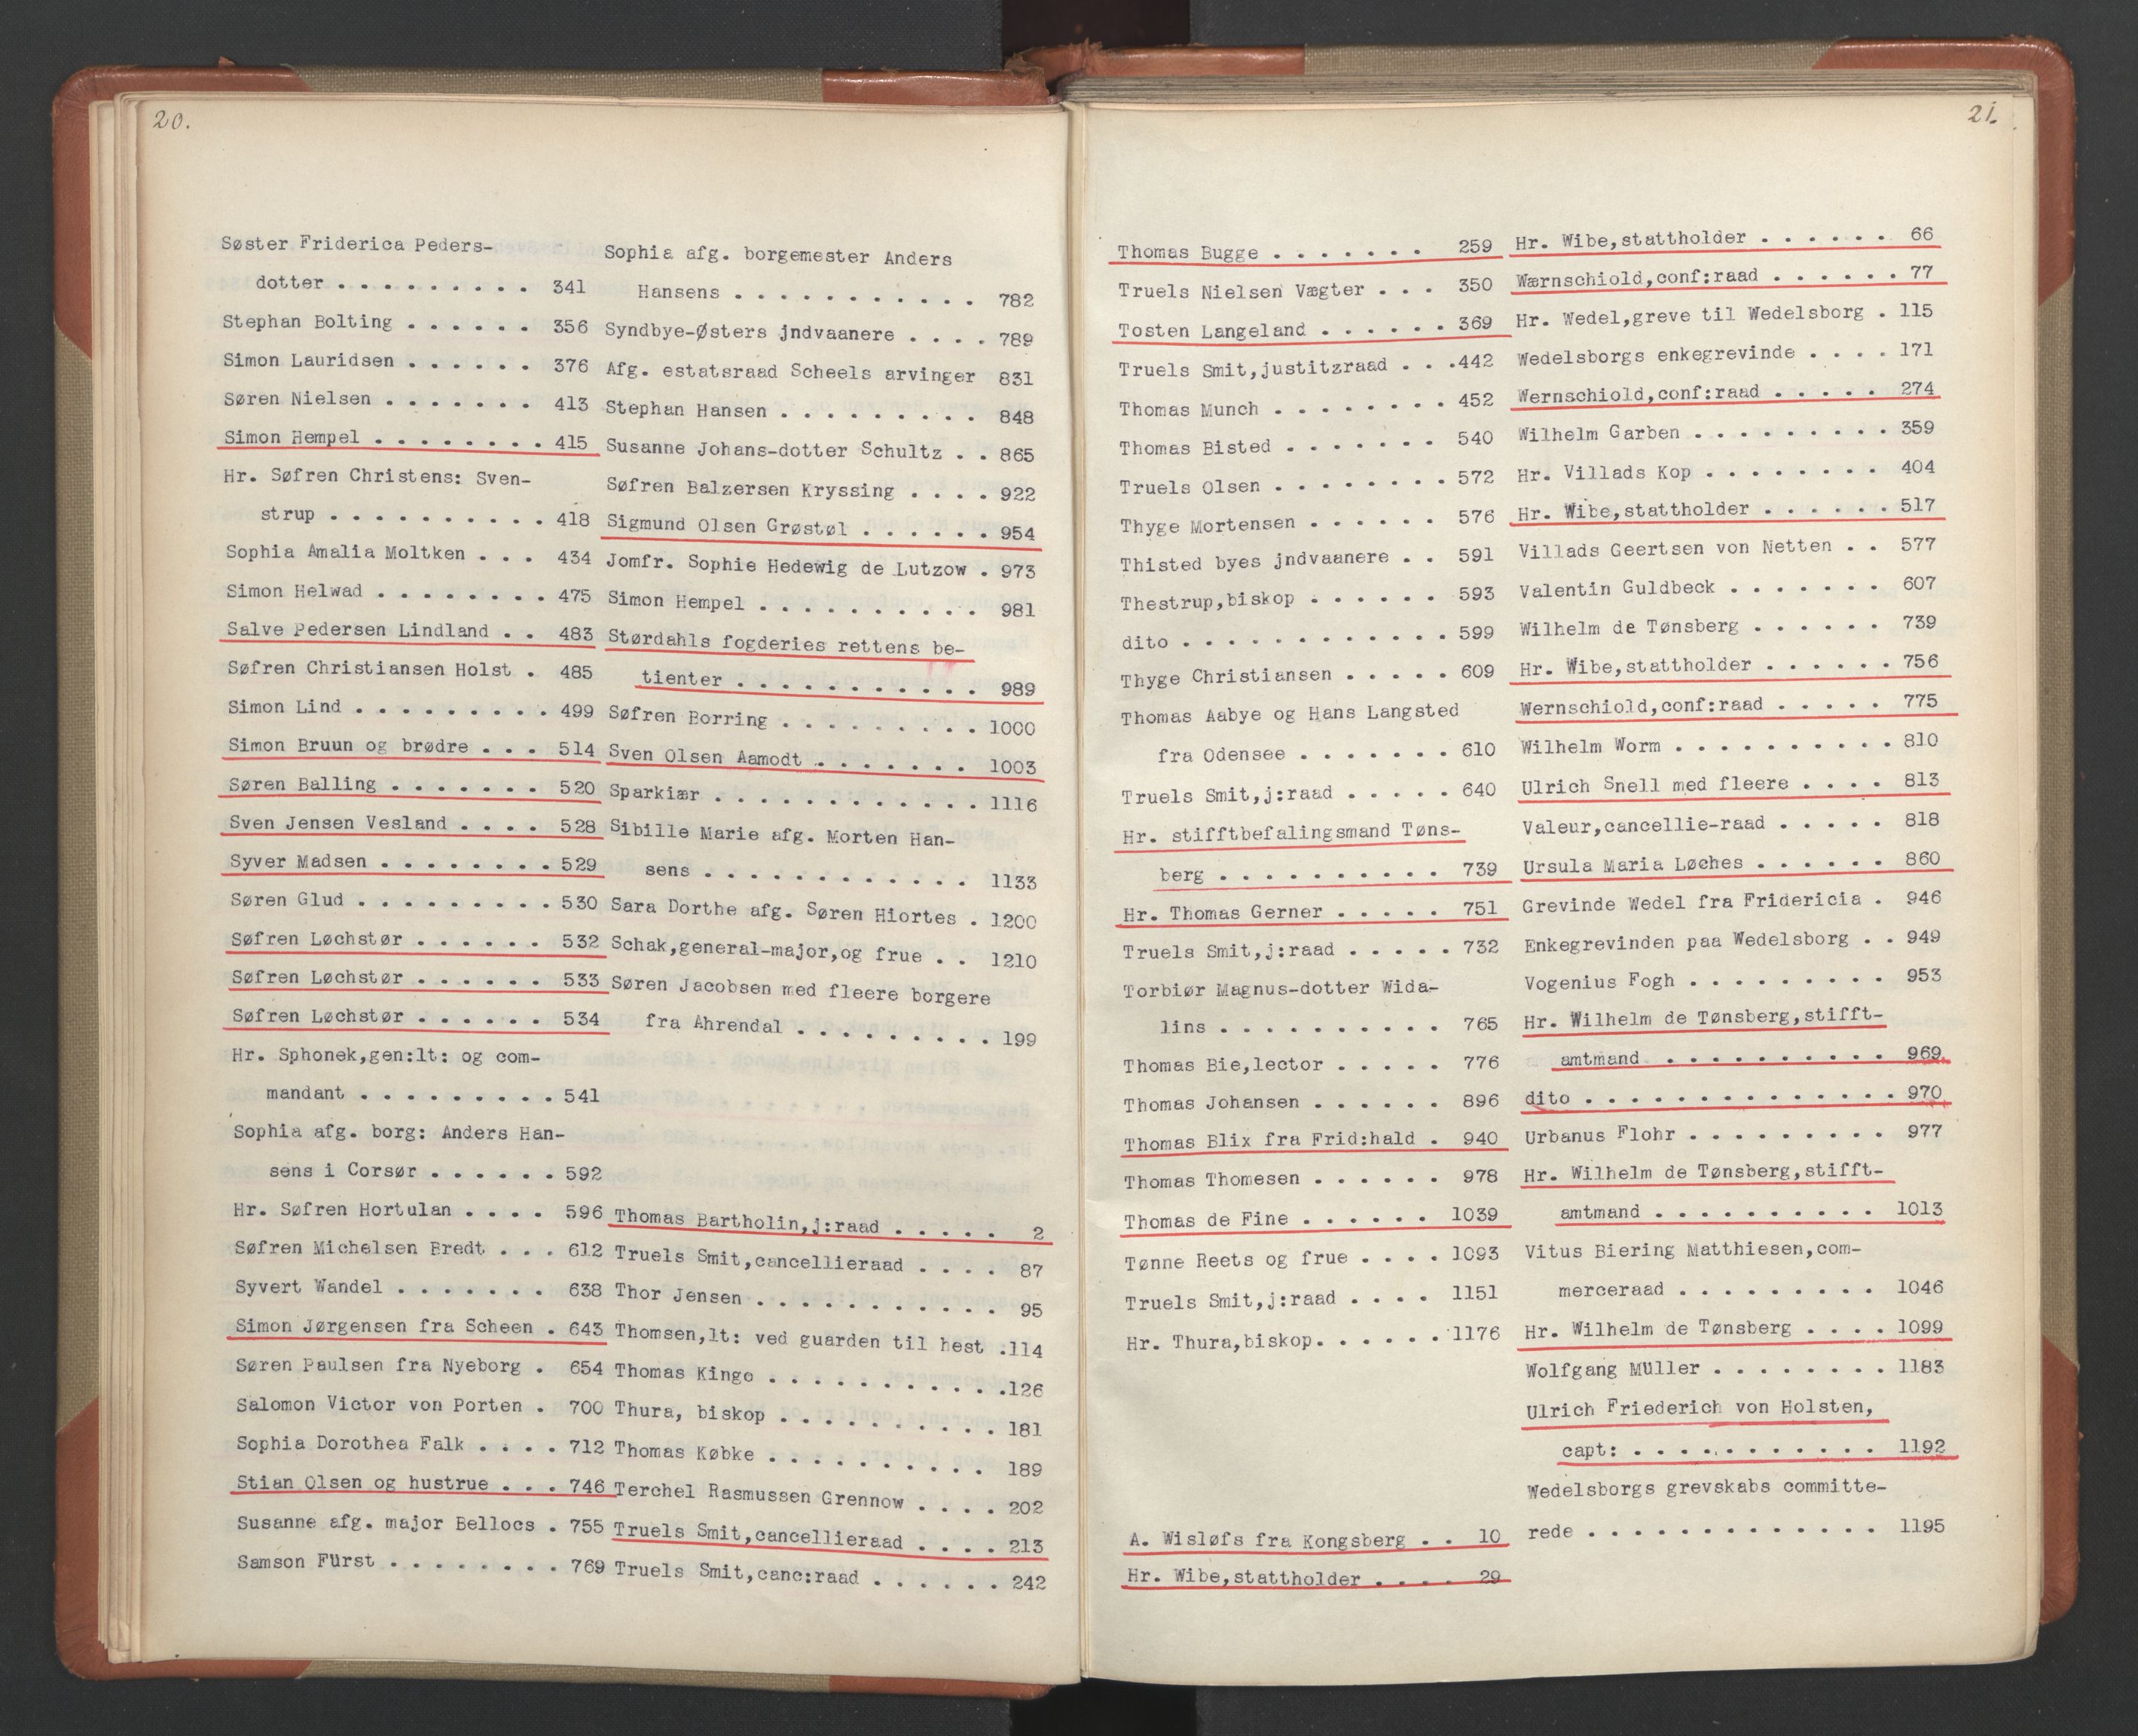 20.
Søster Friderica Peders-
dotter . . . . . . . . . . 341
Stephan Bolting . . . . . . 356
Simon Lauridsen . . . . . . 376
Søren Nielsen . . . . . . . 413
Simon Hempel . . . . . . . . 415
Hr. Søfren Christens: Sven-
strup . . . . . . . . . . 418
Sophia Amalia Moltken . . . 434
Simon Helwad . . . . . . . . 475
Salve Pedersen Lindland . . 483
Søfren Christiansen Holst . 485
Simon Lind . . . . . . . . . 499
Simon Bruun og brødre . . . 514
Søren Balling . . . . . . . 520
Sven Jensen Vesland . . . . 528
Syver Madsen . . . . . . . . 529
Søren Glud . . . . . . . . . 530
Søfren Løchstør . . . . . . 532
Søfren Løchstør . . . . . . 533
Søfren Løchstør . . . . . . 534
Hr. Sphonek,gen:lt: og com-
mandant . . . . . . . . . 541
Sophia afg. borg: Anders Han-
sens i Corsør . . . . . . 592
Hr. Søfren Hortulan . . . . 596
Søfren Michelsen Bredt . . . 612
Syvert Wandel . . . . . . . 638
Simon Jørgensen fra Scheen . 643
Søren Paulsen fra Nyeborg . 654
Salomon Victor von Porten . 700
Sophia Dorothea Falk . . . . 712
Stian Olsen og hustrue . . . 746
Susanne afg. major Bellocs . 755
Samson Fürst . . . . . . . . 769
Sophia afg. borgemester Anders
Hansens . . . . . . . . . . . 782
Syndbye-Østers jndvaanere . . . . 789
Afg. estatsraad Scheels arvinger 831
Stephan Hansen . . . . . . . . . 848
Susanne Johans-dotter Schultz . . 865
Søfren Balzersen Kryssing . . . . 922
Sigmund Olsen Grøstøl . . . . . . 954
Jomfr. Sophie Hedewig de Lutzow . 973
Simon Hempel . . . . . . . . . . 981
Størdahls fogderies rettens be-
tienter . . . . . . . . . . . 989
Søfren Borring . . . . . . . . . 1000
Sven Olsen Aamodt . . . . . . . 1003
Sparkiær . . . . . . . . . . . . 1116
Sibille Marie afg. Morten Han-
sens . . . . . . . . . . . . 1133
Sara Dorthe afg. Søren Hiortes . 1200
Schak,general-major,og frue . . 1210
Søren Jacobsen med fleere borgere
fra Ahrendal . . . . . . . . . 199
Thomas Bartholin,j:raad . . . . . 2
Truels Smit,cancellieraad . . . . 87
Thor Jensen . . . . . . . . . . . 95
Thomsen,lt: ved guarden til hest .114
Thomas Kingo . . . . . . . . . . .126
Thura, biskop . . . . . . . . . . 181
Thomas Købke . . . . . . . . . . 189
Terchel Rasmussen Grennow . . . . 202
Truels Smit,cancellieraad . . . . 213
Truels Smit,canc:raad . . . . . . 242
21.
Thomas Bugge . . . . . . . 259
Truels Nielsen Vægter . . . 350
Tosten Langeland . . . . . . 369
Truels Smit,justitzraad . . .442
Thomas Munch . . . . . . . . 452
Thomas Bisted . . . . . . . 540
Truels Olsen . . . . . . . . 572
Thyge Mortensen . . . . . . 576
Thisted byes jndvaanere . . 591
Thestrup,biskop . . . . . . 593
dito . . . . . . . . . . . . 599
Thyge Christiansen . . . . . 609
Thomas Aabye og Hans Langsted
fra Odensee . . . . . . . 610
Truels Smit,j:raad . . . . . 640
Hr. stifftbefalingsmand Tøns-
berg . . . . . . . . . . 739
Hr. Thomas Gerner . . . . . 751
Truels Smit,j:raad . . . . . 732
Torbiør Magnus-dotter Wida-
lins . . . . . . . . . . 765
Thomas Bie,lector . . . . . 776
Thomas Johansen . . . . . . 896
Thomas Blix fra Frid:hald . 940
Thomas Thomesen . . . . . . 978
Thomas de Fine . . . . . . 1039
Tønne Reets og frue . . . . 1093
Truels Smit,j:raad . . . . 1151
Hr. Thura,biskop. . . . . . 1176
A. Wisløfs fra Kongsberg . . 10
Hr. Wibe,stattholder . . . . 29
Hr. Wibe,stattholder . . . . . . 66
Wærnschiold,conf:raad . . . . . . 77
Hr. Wedel,greve til Wedelsborg . 115
Wedelsborgs enkegrevinde . . . . 171
Wernschiold,conf:raad . . . . . 274
Wilhelm Garben . . . . . . . . . 359
Hr. Villads Kop . . . . . . . . 404
Hr. Wibe,stattholder . . . . . . 517
Villads Geertsen von Netten . . 577
Valentin Guldbeck . . . . . . . 607
Wilhelm de Tønsberg . . . . . . 739
Hr. Wibe,stattholder . . . . . . 756
Wernschiold,conf:raad . . . . . 775
Wilhelm Worm . . . . . . . . . . 810
Ulrich Snell med fleere . . . . 813
Valeur,cancellie-raad . . . . . 818
Ursula Maria Løches . . . . . . 860
Grevinde Wedel fra Fridericia . 946
Enkegrevinden paa Wedelsborg . . 949
Vogenius Fogh . . . . . . . . . 953
Hr. Wilhelm de Tønsberg,stifft-
amtmand . . . . . . . . . . 969
dito . . . . . . . . . . . . . . 970
Urbanus Flohr . . . . . . . . . 977
Hr. Wilhelm de Tønsberg,stifft-
amtmand . . . . . . . . . . 1013
Vitus Biering Matthiesen,com-
merceraad . . . . . . . . . 1046
Hr. Wilhelm de Tønsberg . . . . 1099
Wolfgang Müller . . . . . . . . 1183
Ulrich Friederich von Holsten,
capt: . . . . . . . . . . . 1192
Wedelsborgs grevskabs committe-
rede . . . . . . . . . . . . . . 1195